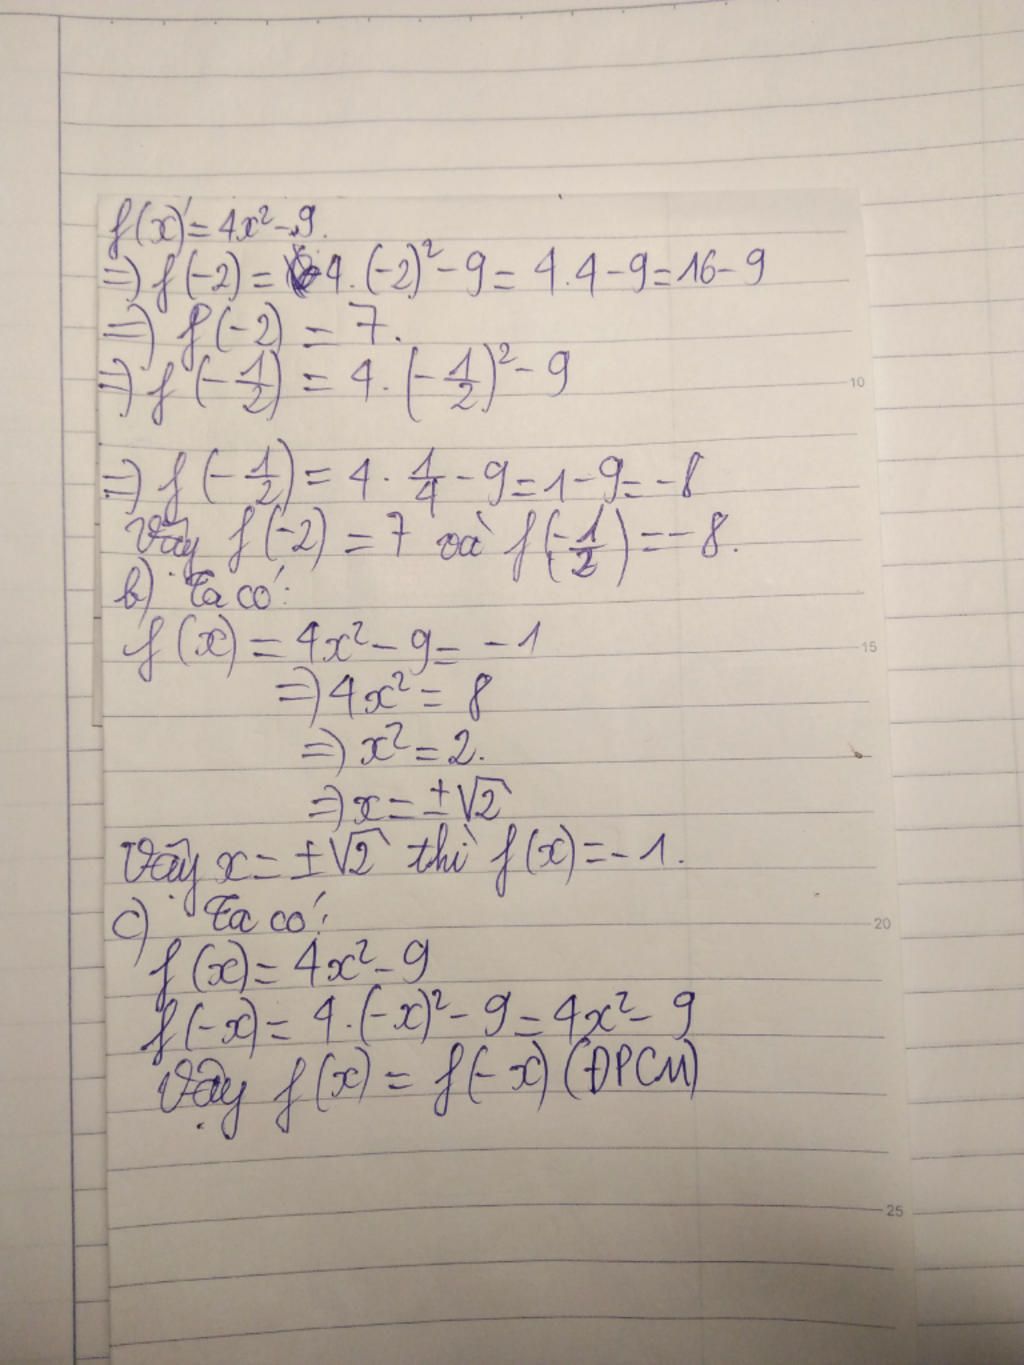 f(x) = 4x² - 9.
=) f(-2) = 4.(-2)² - 9 = 4.4 - 9 = 16 - 9
=) f(-2) = 7.
=) f(-1/2) = 4.(-1/2)² - 9
10
=) f(-1/2) = 4.1/4 - 9 = 1 - 9 = -8
Vậy f(-2) = 7 và f(-1/2) = -8.
b) Ta có:
f(x) = 4x² - 9 = -1
15
=) 4x² = 8
=) x² = 2.
=) x = ±√2
Vậy x = ±√2 thì f(x) = -1.
c) Ta có:
20
f(x) = 4x² - 9
f(-x) = 4.(-x)² - 9 = 4x² - 9
Vậy f(x) = f(-x) (ĐPCM)
25